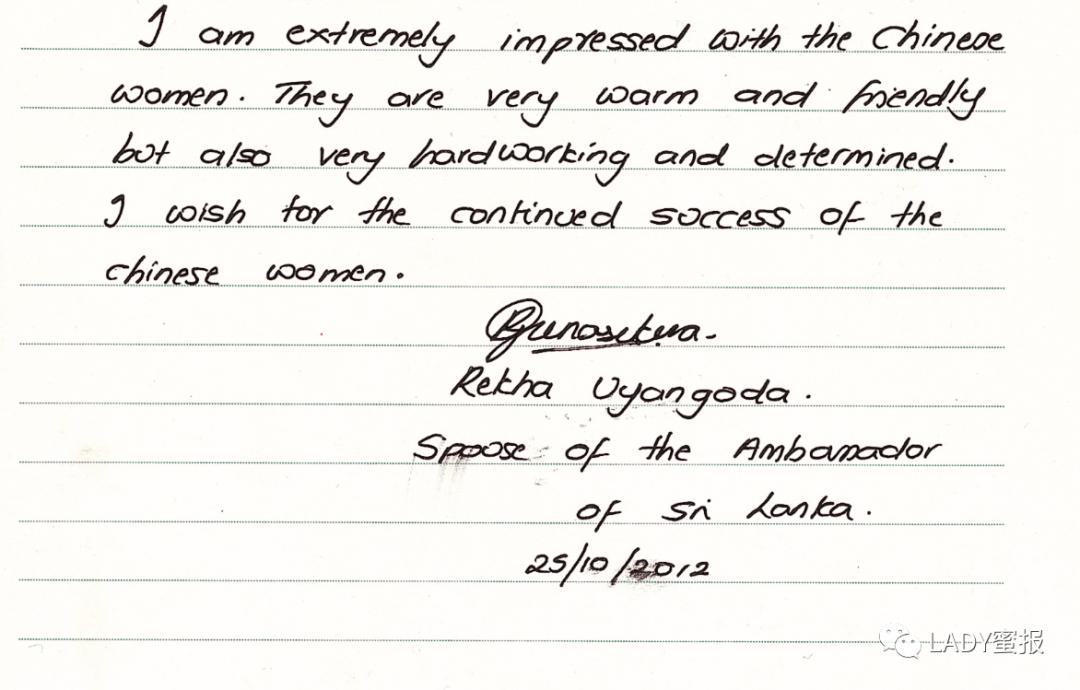 I am extremely impressed with the Chinese
women. They are very warm and friendly
but also very hardworking and determined.
I wish for the continued success of the
chinese women.
Rekha Uyangoda.
Spouse of the Ambassador
of Sri Lanka.
25/10/2012
LADY蜜报